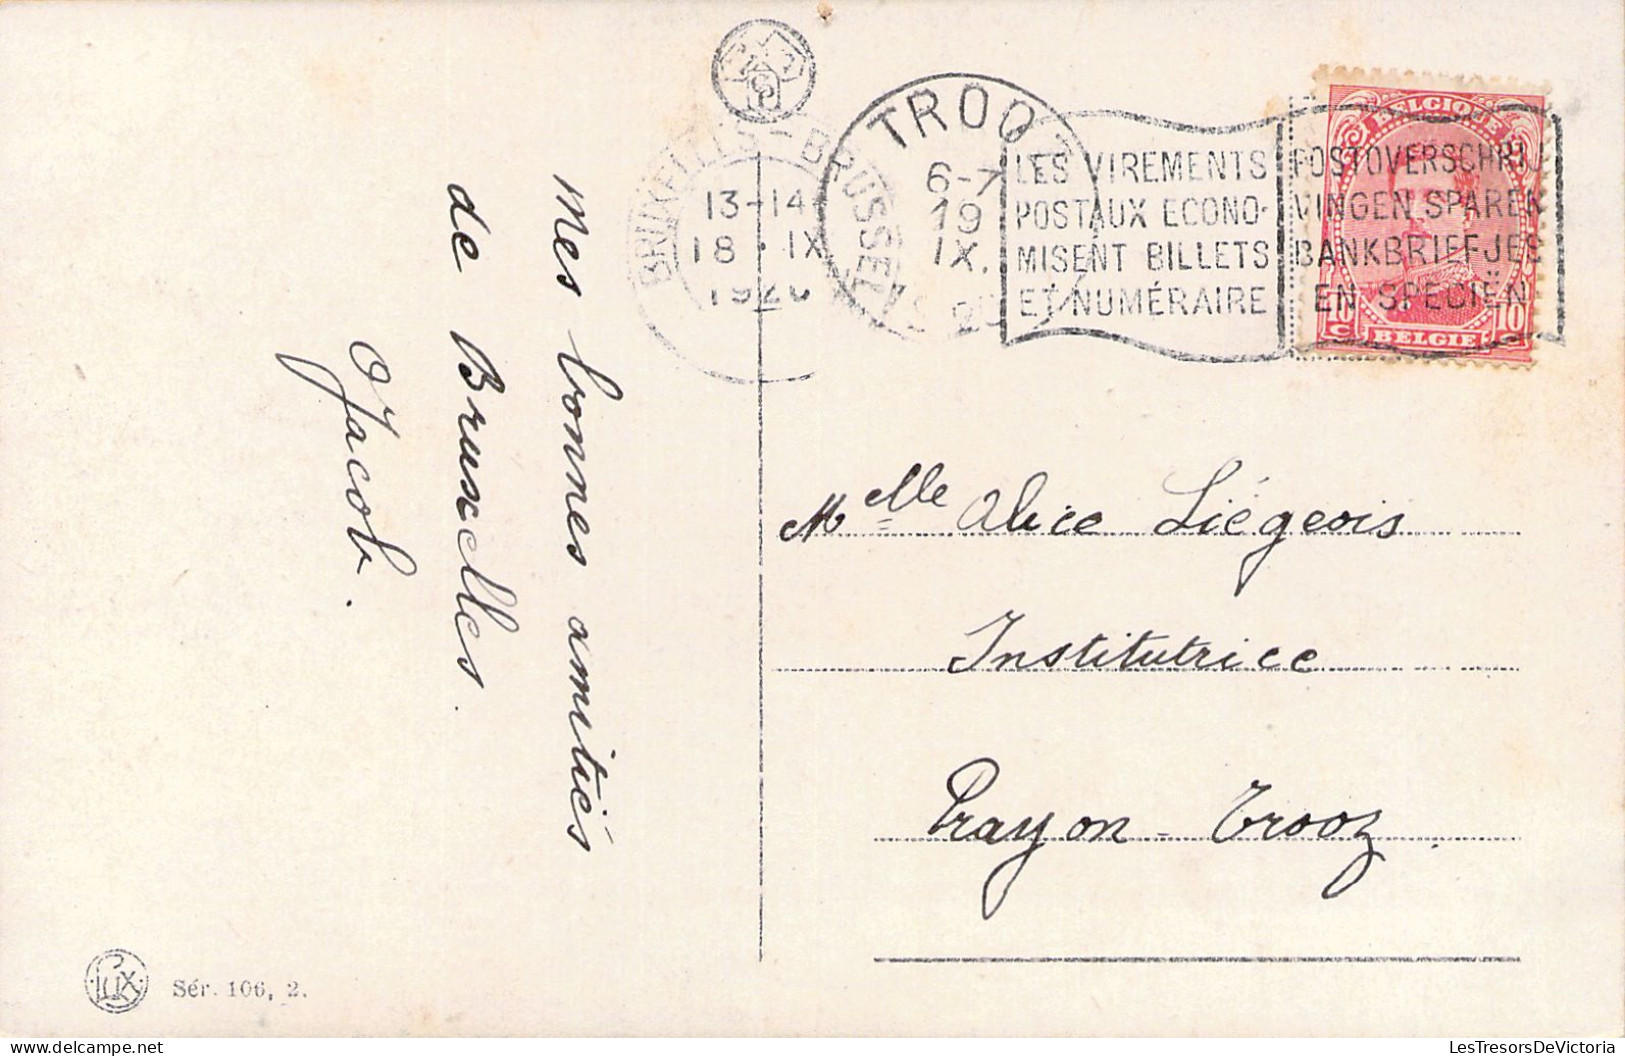 Mes bonnes amitiés
de Bruxelles.
Jacob.
BRUXELLES - BRUSSEL
13-14
18 . IX
1920
TROOZ
6-7
19
IX.
20
LES VIREMENTS
POSTAUX ECONO-
MISENT BILLETS
ET NUMÉRAIRE
POSTOVERSCHRIJ
VINGEN SPAREN
BANKBRIEFJES
EN SPECIËN
BELGIQUE
10 C
BELGIE
10 C
Melle Alice Liégeois
Institutrice
Prayon - Trooz.
LUX
Sér. 106, 2.
LesTresorsDeVictoria